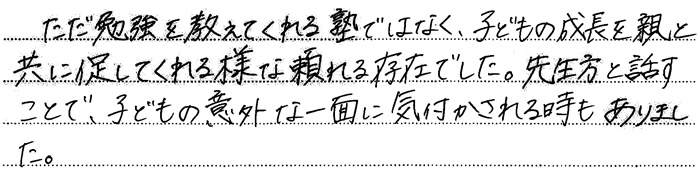 ただ勉強を教えてくれる塾ではなく、子どもの成長を親と
共に促してくれる様な頼れる存在でした。先生方と話す
ことで、子どもの意外な一面に気付かされる時もありまし
た。